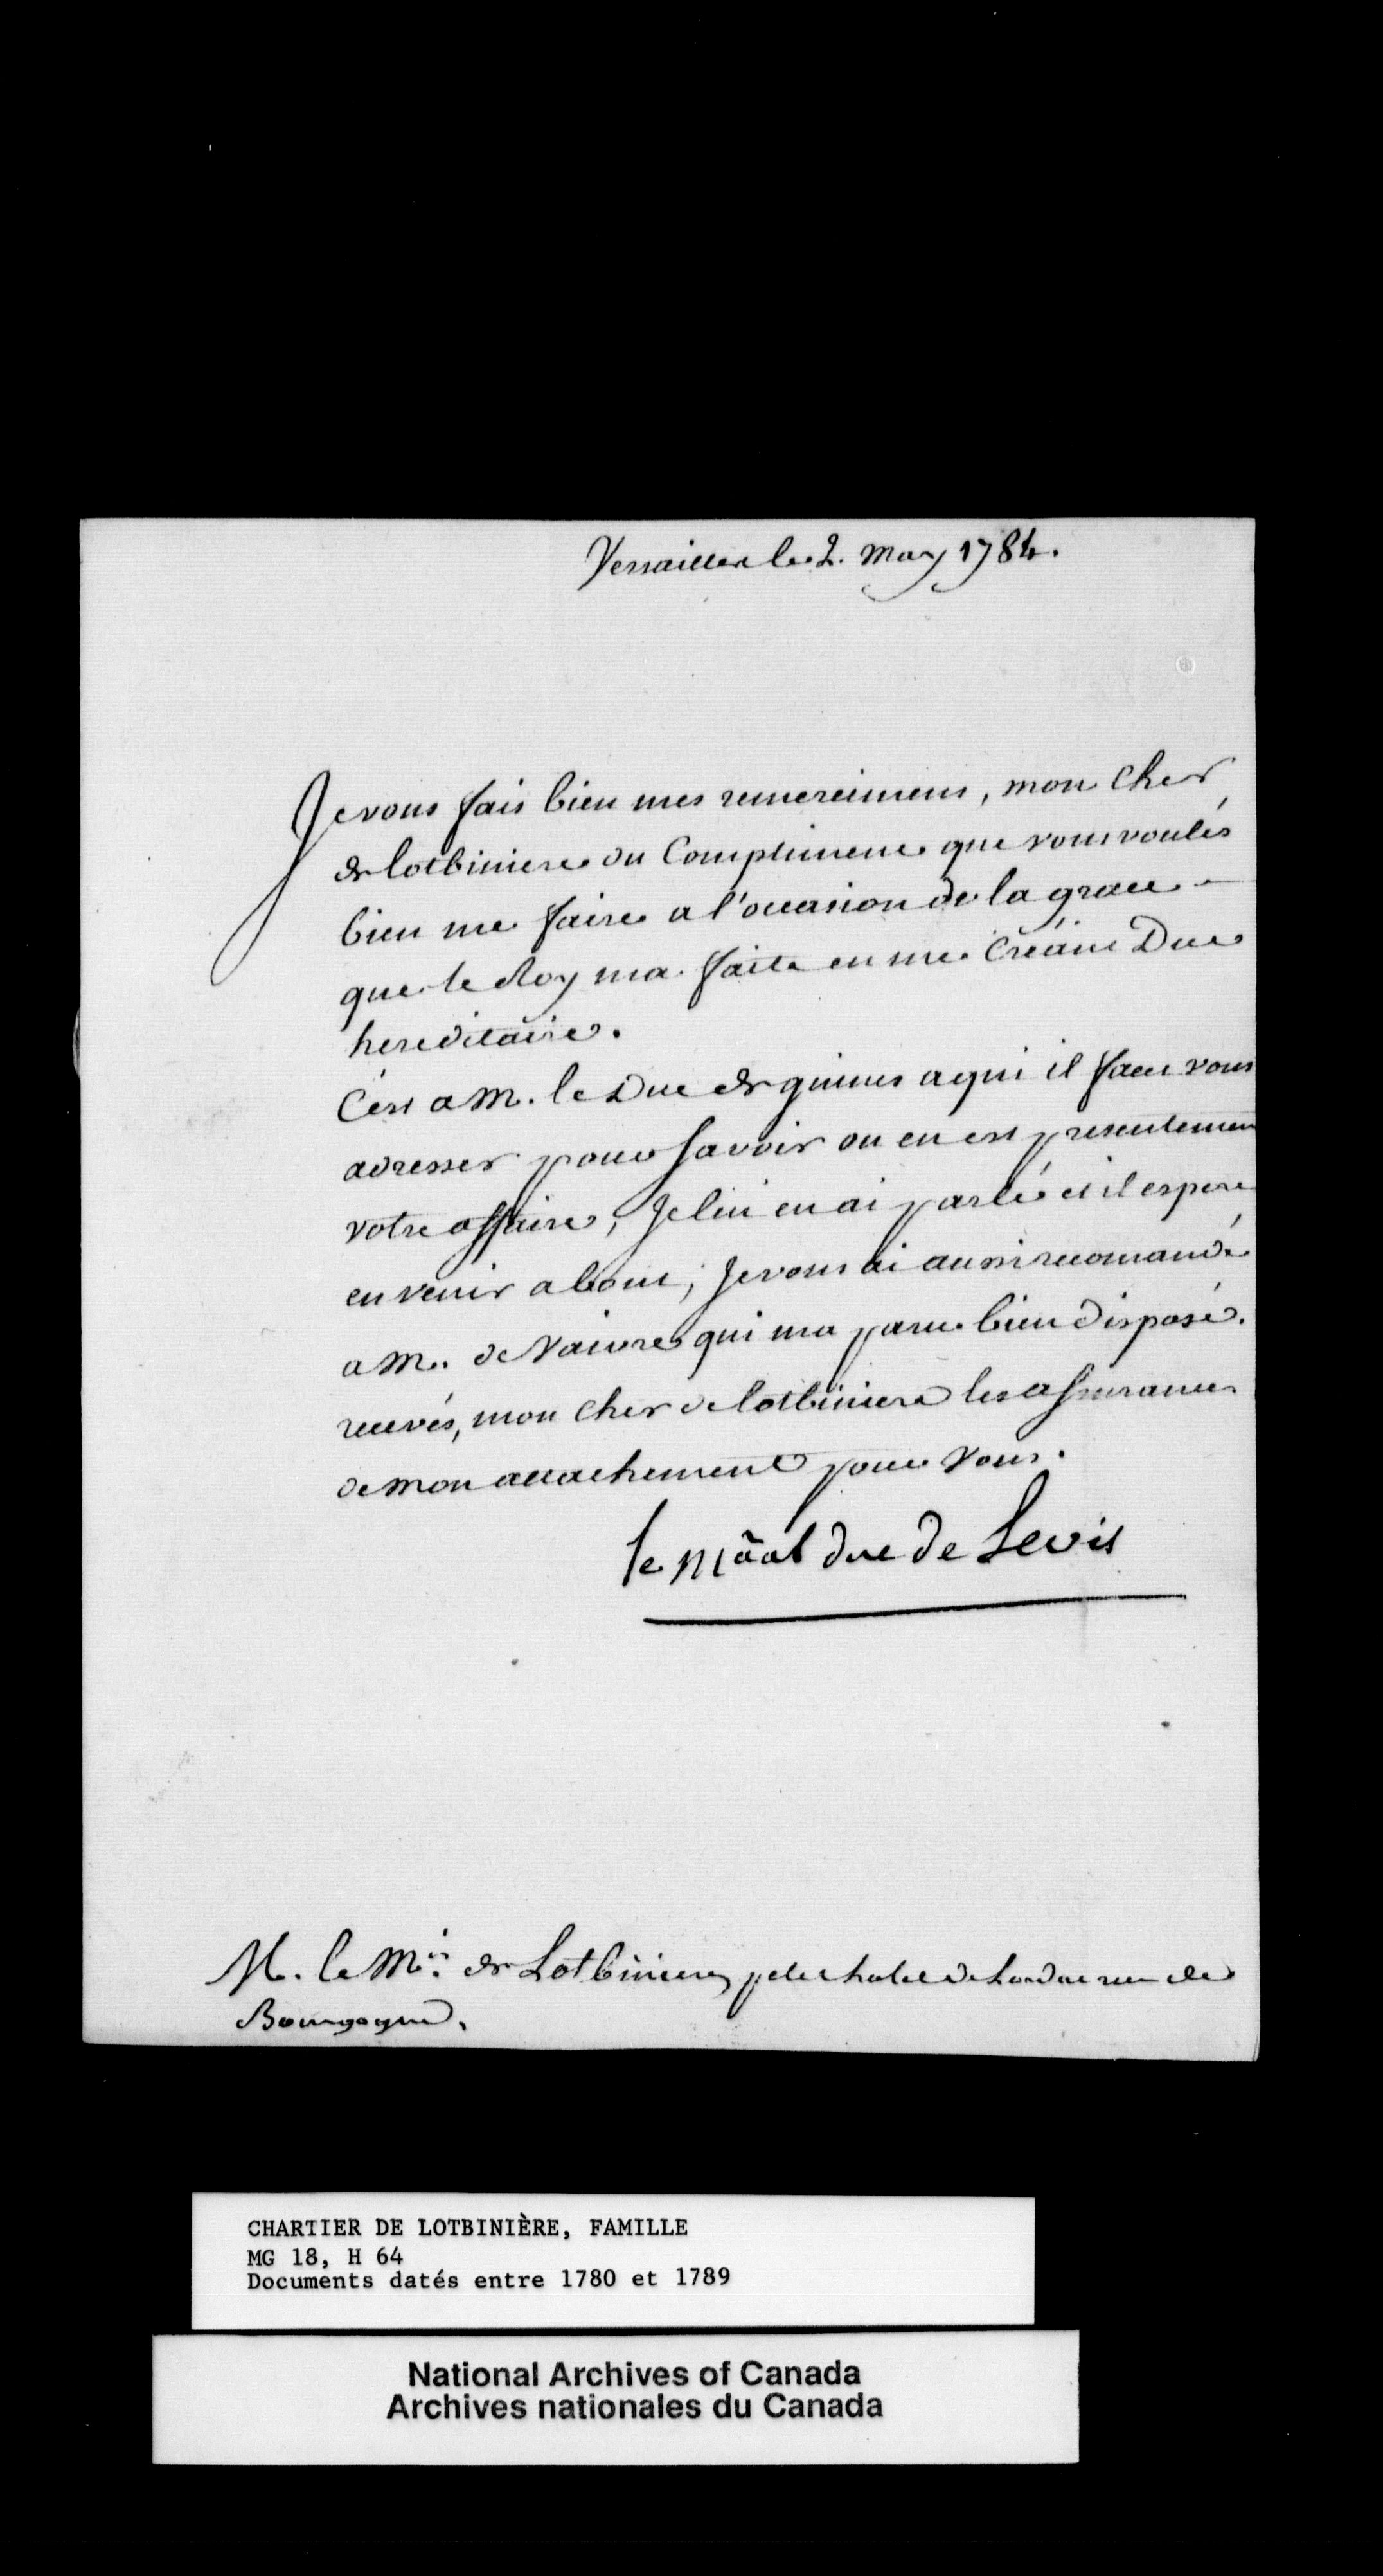 Versailles le 2. May 1784.
Je vous fais bien mes remercimens, mon Cher
de lotbiniere du Compliment que vous voulés
bien me faire a l'occasion de la grace
que le Roy ma faite en me Créant Duc
hereditaire.
C'est a M. le Duc de guines a qui il faut vous
adresser pour savoir ou en est presentement
votre affaire, Je lui en ai parlé et il espere
en venir a bout; Je vous ai aussi recomandé
a M. de Vaivre qui ma paru bien disposé.
recevés, mon Cher de lotbiniere les assurances
de mon attachement pour Vous.
le mãal duc de Levis
M. le Mis. de Lotbiniere hotel de rue de
Bourgogne.
CHARTIER DE LOTBINIÈRE, FAMILLE
MG 18, H 64
Documents datés entre 1780 et 1789
National Archives of Canada
Archives nationales du Canada